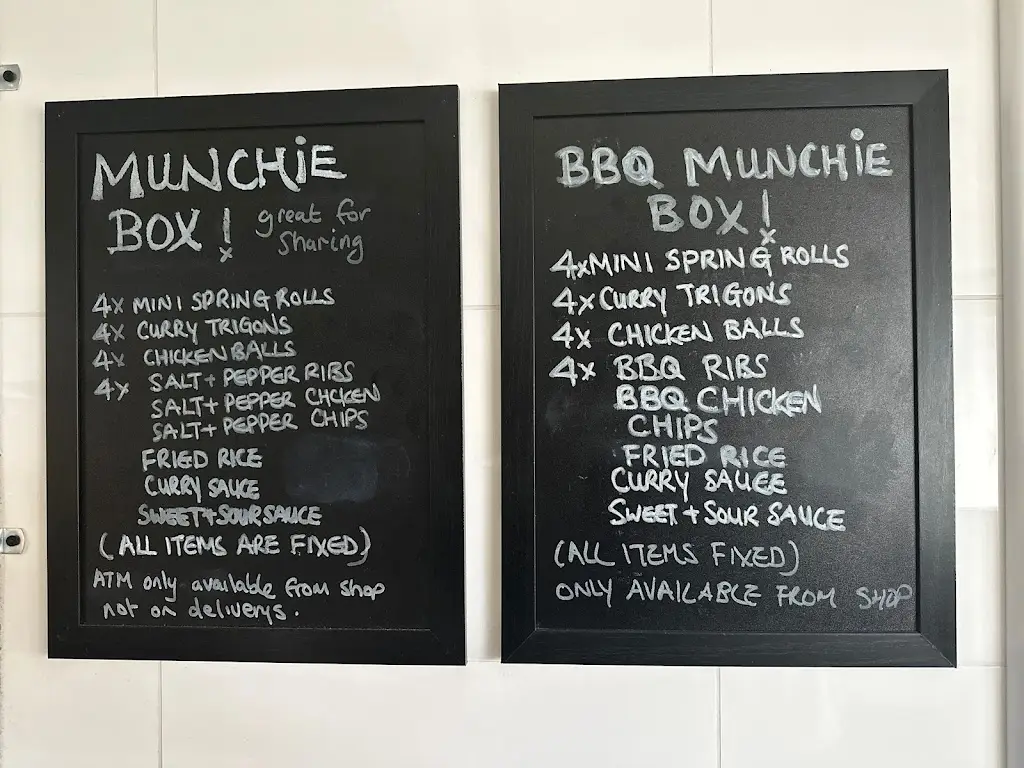 MUNCHiE
BOX! great for
sharing
x
4x MINI SPRING ROLLS
4x CURRY TRIGONS
4x CHICKEN BALLS
4x SALT+ PEPPER RIBS
SALT+ PEPPER CHICKEN
SALT+ PEPPER CHIPS
FRIED RICE
CURRY SAUCE
SWEET+SOUR SAUCE
(ALL ITEMS ARE FIXED)
ATM only available from shop
not on deliverys.
BBQ MUNCHiE
BOX!
x
4xMINI SPRING ROLLS
4x CURRY TRIGONS
4x CHICKEN BALLS
4x BBQ RIBS
BBQ CHICKEN
CHIPS
FRIED RICE
CURRY SAUCE
SWEET + SOUR SAUCE
(ALL ITEMS FIXED)
ONLY AVAILABLE FROM SHOP